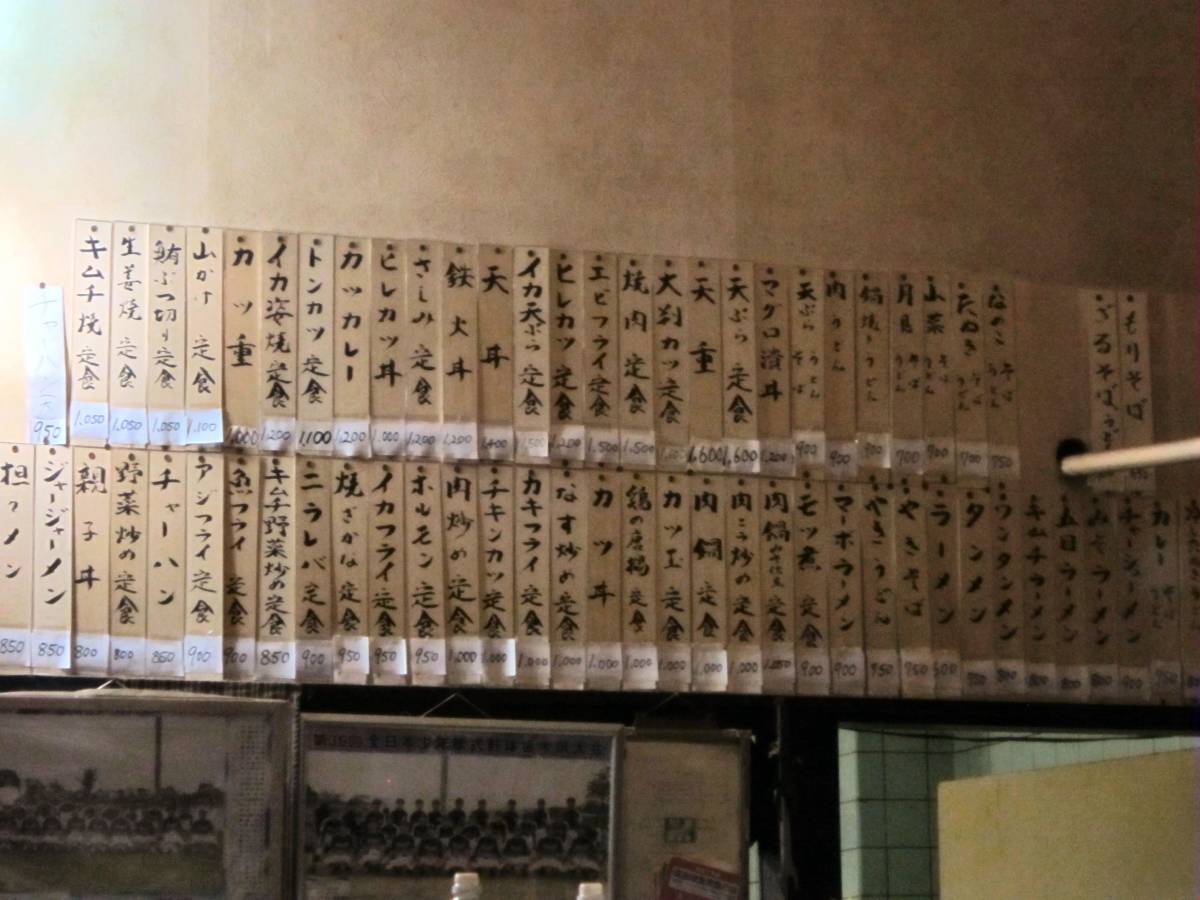 もりそば
ざるそば
なめこ そば うどん 750
たぬき そば うどん 700
山菜 そば うどん 700
月見 そば うどん 700
鍋焼きうどん 900
肉うどん 900
天ぷら うどん そば 900
マグロ漬丼 1,200
天ぷら定食 1,600
天重 1,600
大判カツ定食
焼肉定食 1,500
エビフライ定食 1,500
ヒレカツ定食 1,200
イカ天ぷら定食
天丼 1,400
鉄火丼 1,200
さしみ定食 1,200
ヒレカツ丼 1,000
カツカレー 1,200
トンカツ定食 1,100
イカ姿焼定食 1,200
カツ重 1,000
山かけ定食 1,100
鮪ぶつ切り定食 1,050
生姜焼定食 1,050
キムチ焼定食 1,050
950
カレー そば うどん
チャーシューメン 900
みそラーメン 800
五目ラーメン 800
キムチラーメン
ワンタンメン
タンメン
ラーメン 600
やきそば 750
やきうどん
マーボラーメン 900
モツ煮定食 900
肉鍋 1,050
肉ニラ炒め定食 1,000
肉鍋定食 1,000
カツ玉定食 1,000
鶏の唐揚定食 1,000
カツ丼 1,000
なす炒め定食 1,000
カキフライ定食 1,000
チキンカツ定食 1,000
肉炒め定食 1,000
ホルモン定食 950
イカフライ定食 950
焼ざかな定食 950
ニラレバ定食 900
キムチ野菜炒め定食 850
魚フライ定食 900
アジフライ定食 900
チャーハン 850
野菜炒め定食 800
親子丼 800
ジャージャーメン 850
担々メン 850